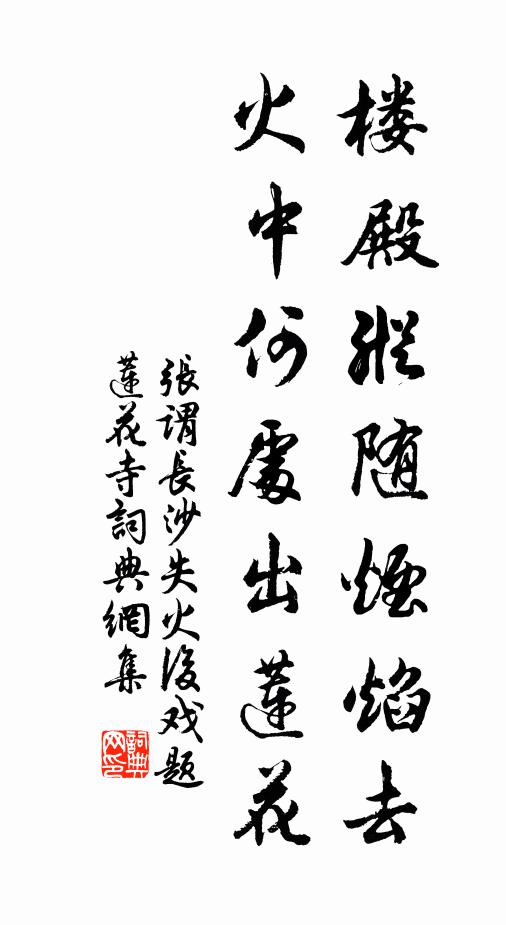 楼殿纵随煙焰去
火中何處出蓮花
張謂長沙失火後戏題
蓮花寺詞典網集
詞典网印